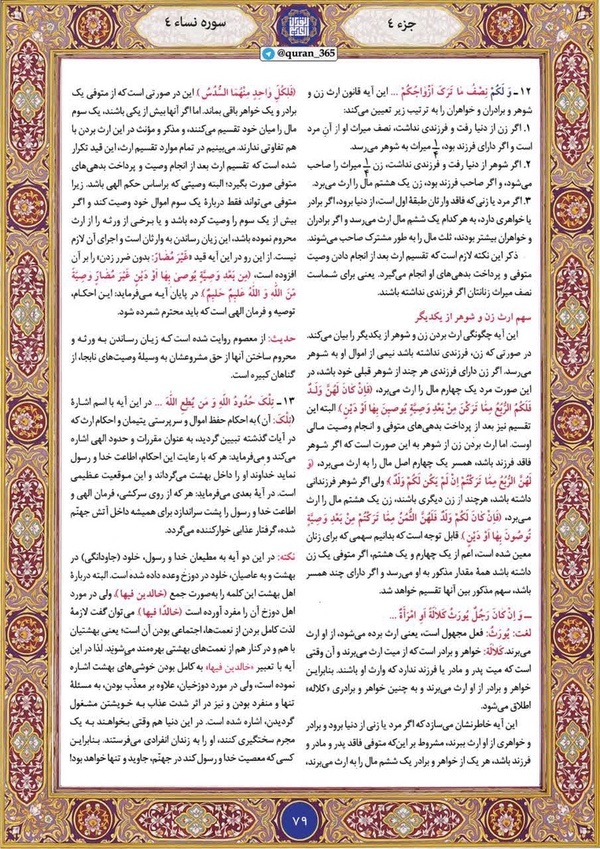 جزء ٤
سوره نساء ٤
@quran_365
١٢ـ وَ لَكُمْ نِصْفُ مَا تَرَكَ أَزْوَاجُكُمْ ... این آیه قانون ارث زن و
شوهر و برادران و خواهران را به ترتیب زیر تعیین می‌کند:
١. اگر زن از دنیا رفت و فرزندی نداشت، نصف میراث او از آنِ مرد
است و اگر دارای فرزند بود، ١/٤ میراث به شوهر می‌رسد.
٢. اگر شوهر از دنیا رفت و فرزندی نداشت، زن ١/٤ میراث را صاحب
می‌شود، و اگر صاحب فرزند بود، زن یک هشتم مال را ارث می‌برد.
٣. اگر مرد یا زنی که فاقد وارثان طبقهٔ اول است، از دنیا برود، اگر برادر
یا خواهری دارد، به هر کدام یک ششم مال ارث می‌رسد و اگر برادران
و خواهران بیشتر بودند، ثلث مال را به طور مشترک صاحب می‌شوند.
ذکر این نکته لازم است که تقسیم ارث بعد از انجام دادن وصیت
متوفی و پرداخت بدهی‌های او انجام می‌گیرد. یعنی برای شماست
نصف میراث زنانتان اگر فرزندی نداشته باشند.
سهم ارث زن و شوهر از یکدیگر
این آیه چگونگی ارث بردن زن و شوهر از یکدیگر را بیان می‌کند.
در صورتی که زن، فرزندی نداشته باشد نیمی از اموال او به شوهر
می‌رسد. اگر زن دارای فرزندی هر چند از شوهر قبلی خود باشد، در
این صورت مرد یک چهارم مال را ارث می‌برد، (فَإِنْ كَانَ لَهُنَّ وَلَدٌ
فَلَكُمُ الرُّبُعُ مِمَّا تَرَكْنَ مِنْ بَعْدِ وَصِيَّةٍ يُوصِينَ بِهَا أَوْ دَيْنٍ) البته این
تقسیم نیز بعد از پرداخت بدهی‌ها و انجام وصیت مالی
اوست. اما ارث بردن زن از شوهر به این صورت است که اگر شوهر
فاقد فرزند باشد، همسر یک چهارم اصل مال را به ارث می‌برد، (وَ
لَهُنَّ الرُّبُعُ مِمَّا تَرَكْتُمْ إِنْ لَمْ يَكُنْ لَكُمْ وَلَدٌ) ولی اگر شوهر فرزندانی
داشته باشد، هرچند از زن دیگری باشند، زن یک هشتم مال را ارث
می‌برد، (فَإِنْ كَانَ لَكُمْ وَلَدٌ فَلَهُنَّ الثُّمُنُ مِمَّا تَرَكْتُمْ مِنْ بَعْدِ وَصِيَّةٍ
تُوصُونَ بِهَا أَوْ دَيْنٍ). قابل توجه است که بدانیم سهمی که برای زنان
معین شده است، أعم از یک چهارم و یک هشتم، اگر متوفی یک زن
داشته باشد همهٔ مقدار مذکور به او می‌رسد و اگر دارای چند همسر
باشد، سهم مذکور بین آنها تقسیم خواهد شد.
ــ وَ إِنْ كَانَ رَجُلٌ يُورَثُ كَلَالَةً أَوِ امْرَأَةٌ ...
لغت: یُورَثُ: فعل مجهول است، یعنی ارث برده می‌شود، از او ارث
می‌برند. کَلَالَة: خواهر و برادر است که از میت ارث می‌برند و آن وقتی
است که میت پدر و مادر یا فرزند ندارد که وارث او باشند. بنابراین
خواهر و برادر از او ارث می‌برند و به چنین خواهر و برادری «کلاله»
اطلاق می‌شود.
این آیه خاطرنشان می‌سازد که اگر مرد یا زنی از دنیا برود و برادر
و خواهری از او ارث ببرند، مشروط بر این‌که متوفی فاقد پدر و مادر و
فرزند باشد، هر یک از خواهر و برادر یک ششم مال را به ارث می‌برند،
(فَلِكُلِّ وَاحِدٍ مِنْهُمَا السُّدُسُ) این در صورتی است که از متوفی یک
برادر و یک خواهر باقی بماند. اما اگر آنها بیش از یکی باشند، یک سوم
مال را میان خود تقسیم می‌کنند، و مذکر و مؤنث در این ارث بردن با
هم تفاوتی ندارند. می‌بینیم در تمام موارد تقسیم ارث، این قید تکرار
شده است که تقسیم ارث بعد از انجام وصیت و پرداخت بدهی‌های
متوفی صورت بگیرد؛ البته وصیتی که براساس حکم الهی باشد. زیرا
متوفی می‌تواند فقط دربارهٔ یک سوم اموال خود وصیت کند و اگر
بیش از یک سوم را وصیت کرده باشد و یا برخی از ورثه را از ارث
محروم نموده باشد، این زیان رساندن به وارثان است و اجرای آن لازم
نیست. از این رو در این آیه قید «غَیْرَ مُضَارٍّ: بدون ضرر زدن» را بر آن
افزوده است، (مِن بَعْدِ وَصِيَّةٍ يُوصَىٰ بِهَا أَوْ دَيْنٍ غَيْرَ مُضَارٍّ وَصِيَّةً
مِّنَ اللَّهِ وَ اللَّهُ عَلِيمٌ حَلِيمٌ). در پایان آیه می‌فرماید: این احکام،
توصیه و فرمان الهی است که باید محترم شمرده شود.
حدیث: از معصوم روایت شده است که زیان رساندن به ورثه و
محروم ساختن آنها از حق مشروعشان به وسیلهٔ وصیت‌های نابجا، از
گناهان کبیره است.
١٣ـ تِلْكَ حُدُودُ اللَّهِ وَ مَن يُطِعِ اللَّهَ ... در این آیه با اسم اشارهٔ
(تِلْكَ: آن) به احکام حفظ اموال و سرپرستی یتیمان و احکام ارث که
در آیات گذشته تبیین گردید، به عنوان مقررات و حدود الهی اشاره
می‌کند و می‌فرماید: هر که با رعایت این احکام، اطاعت خدا و رسول
نماید خداوند او را داخل بهشت می‌گرداند و این موقعیت عظیمی
است. در آیهٔ بعدی می‌فرماید: هر که از روی سرکشی، فرمان الهی و
اطاعت خدا و رسول را پشت سراندازد برای همیشه داخل آتش جهنّم
شده، گرفتار عذابی خوارکننده می‌گردد.
نکته: در این دو آیه به مطیعان خدا و رسول، خلود (جاودانگی) در
بهشت و به عاصیان، خلود در دوزخ وعده داده شده است. البته دربارهٔ
اهل بهشت این کلمه را به‌صورت جمع (خالدین فیها)، ولی در مورد
اهل دوزخ آن را مفرد آورده است (خالداً فیها). می‌توان گفت لازمهٔ
لذت کامل بردن از نعمت‌ها، اجتماعی بودن آن است؛ یعنی بهشتیان
با هم و در کنار هم از نعمت‌های بهشتی بهره‌مند می‌شوند. لذا در این
آیه با تعبیر «خالدین فیها» به کامل بودن خوشی‌های بهشت اشاره
نموده است، ولی در مورد دوزخیان، علاوه بر معذّب بودن، به مسئلهٔ
تنها و منفرد بودن و نیز در اثر شدت عذاب به خویشتن مشغول
گردیدن، اشاره شده است. در این دنیا هم وقتی بخواهند به یک
مجرم سختگیری کنند، او را به زندان انفرادی می‌فرستند. بنابراین
کسی که معصیت خدا و رسول کند در جهنّم، جاوید و تنها خواهد بود!
٧٩